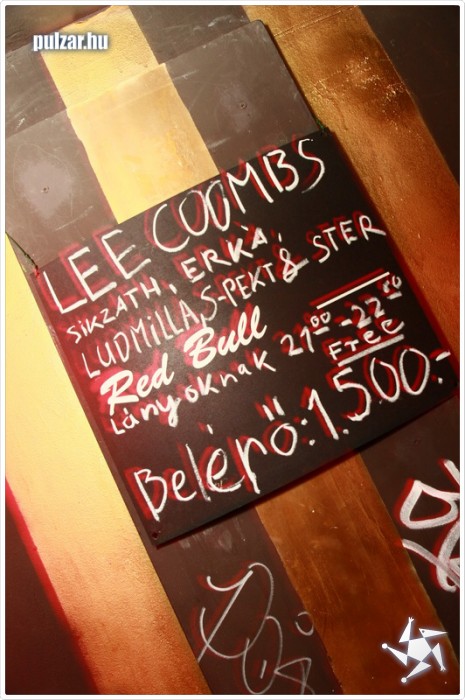 pulzar.hu
LEE COOMBS
SIKZATH, ERKA,
LUDMILLA, S-PEKT & STER
Red Bull
Lányoknak 21⁰⁰ - 22⁰⁰ Free
Belépő: 1.500.-